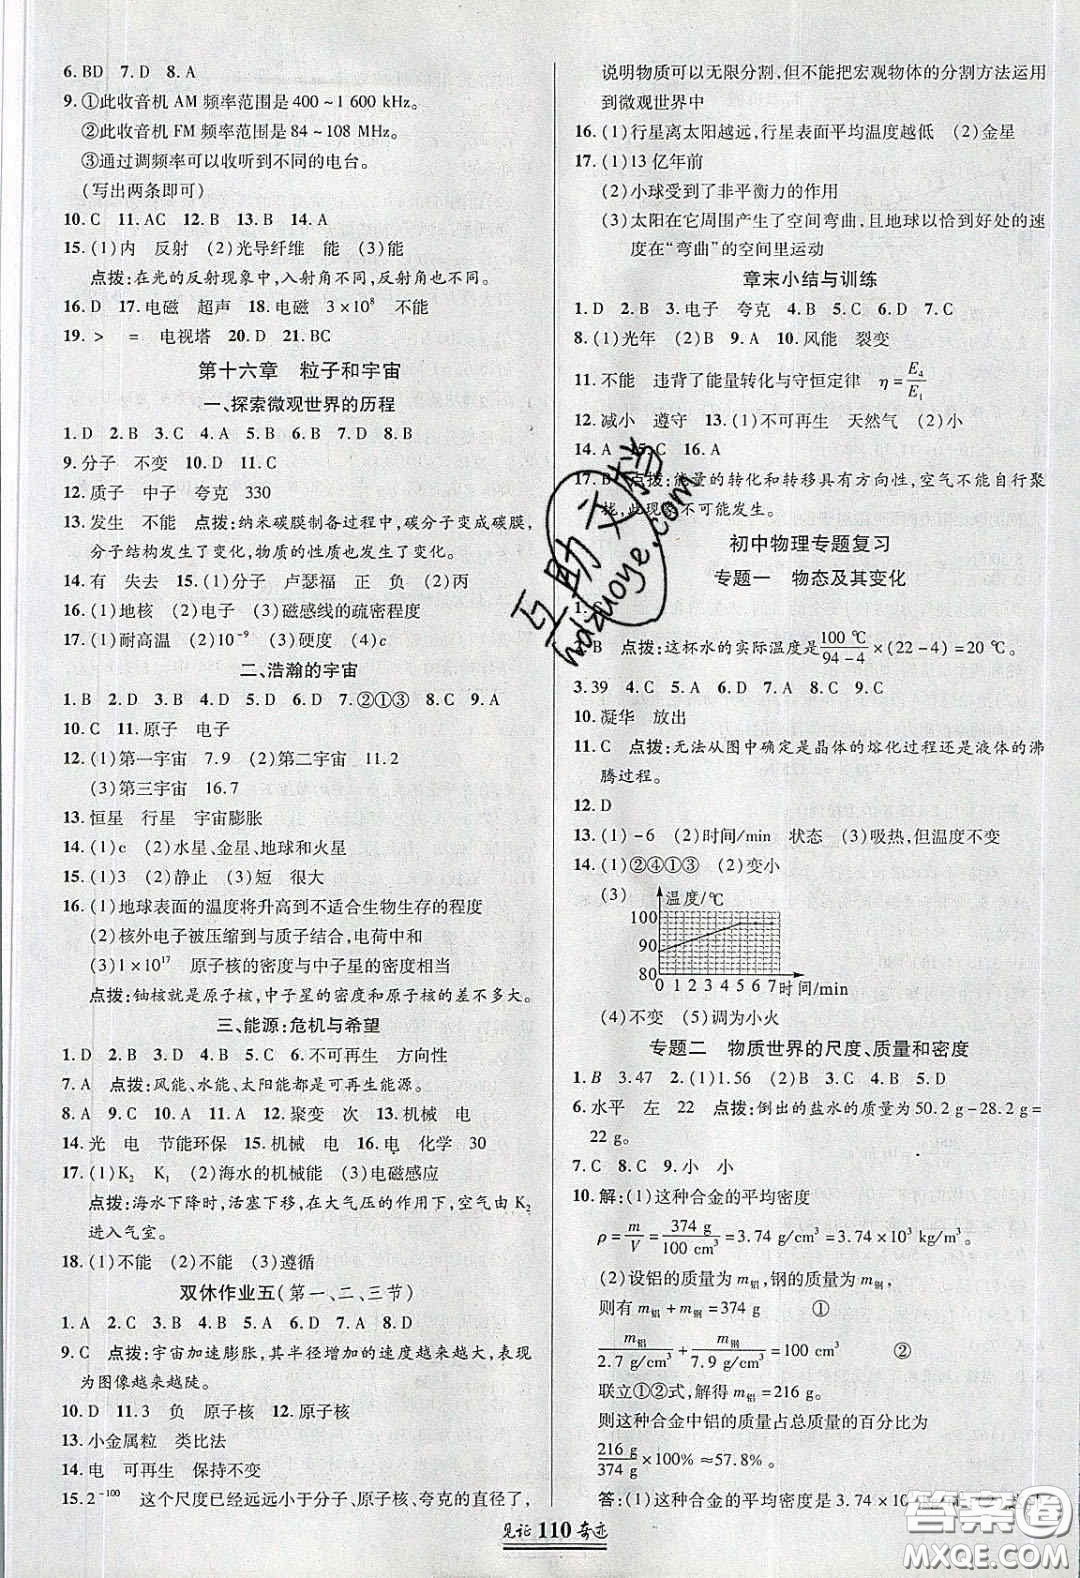 6. BD 7. D 8. A
9. ①此收音机 AM 频率范围是 400~1 600 kHz。
②此收音机 FM 频率范围是 84~108 MHz。
③通过调频率可以收听到不同的电台。
(写出两条即可)
10. C 11. AC 12. B 13. B 14. A
15. (1)内 反射 (2)光导纤维 能 (3)能
点拨:在光的反射现象中,入射角不同,反射角不同。
16. D 17. 电磁 超声 18. 电磁 3×10⁸ 不能
19. > = 电视塔 20. D 21. BC
第十六章 粒子和宇宙
一、探索微观世界的历程
1. D 2. B 3. C 4. A 5. B 6. B 7. C 8. B
9. 分子 不变 10. D 11. C
12. 质子 中子 夸克 330
13. 发生 不能 点拨:纳米碳膜制备过程中,碳分子变成碳膜,
分子结构发生了变化,物质的性质也发生了变化。
14. 有 失去 15. (1)分子 卢瑟福 正 负 (2)丙
16. (1)地核 (2)电子 (3)磁感线的疏密程度
17. (1)耐高温 (2)10⁻⁹ (3)硬度 (4)c
二、浩瀚的宇宙
1. B 2. D 3. B 4. D 5. D 6. D 7. ②①③ 8. C 9. A
10. C 11. 原子 电子
12. (1)第一宇宙 7.9 (2)第二宇宙 11.2
(3)第三宇宙 16.7
13. 恒星 行星 宇宙膨胀
14. (1)c (2)水星、金星、地球和火星
15. (1)3 (2)静止 (3)短 很大
16. (1)地球表面的温度将升高到不适合生物生存的程度
(2)核外电子被压缩到与质子结合,电荷中和
(3)1×10¹⁷ 原子核的密度与中子星的密度相当
点拨:铀核就是原子核,中子星的密度和原子核的差不多大。
三、能源:危机与希望
1. D 2. D 3. B 4. D 5. C 6. 不可再生 方向性
7. A 点拨:风能、水能、太阳能都是可再生能源。
8. A 9. D 10. C 11. A 12. 聚变 次 13. 机械 电
14. 光 电 节能环保 15. 机械 电 16. 电 化学 30
17. (1)K₂ K₁ (2)海水的机械能 (3)电磁感应
点拨:海水下降时,活塞下移,在大气压的作用下,空气由 K₂
进入气室。
18. (1)不能 (2)不能 (3)遵循
双休作业五(第一、二、三节)
1. A 2. D 3. B 4. B 5. D 6. D 7. A 8. D
9. C 点拨:宇宙加速膨胀,其半径增加的速度越来越大,表现
为图像越来越陡。
10. D 11. 3 负 原子核 12. 原子核
13. 小金属粒 类比法
14. 电 可再生 保持不变
15. 2⁻¹⁰⁰ 这个尺度已经远远小于分子、原子核、夸克的直径了,
说明物质可以无限分割,但不能把宏观物体的分割方法运用
到微观世界中
16. (1)行星离太阳越远,行星表面平均温度越低 (2)金星
17. (1)13 亿年前
(2)小球受到了非平衡力的作用
(3)太阳在它周围产生了空间弯曲,且地球以恰到好处的速
度在“弯曲”的空间里运动
章末小结与训练
1. D 2. C 3. B 4. 电子 夸克 5. D 6. D 7. C
8. (1)光年 (2)B 9. A 10. 风能 裂变
11. 不能 违背了能量转化与守恒定律 η=E₄/E₁
12. 减小 遵守 13. (1)不可再生 天然气 (2)小
14. A 15. C 16. A
17. B 点拨:能量的转化和转移具有方向性,空气不能自行聚
拢,此现象不可能发生。
初中物理专题复习
专题一 物态及其变化
1. C
2. B 点拨:这杯水的实际温度是100 ℃/(94-4)×(22-4)=20 ℃。
3. 39 4. C 5. A 6. D 7. D 8. A 9. C
10. 凝华 放出
11. C 点拨:无法从图中确定是晶体的熔化过程还是液体的沸
腾过程。
12. D
13. (1)-6 (2)时间/min 状态 (3)吸热,但温度不变
14. (1)②④①③ (2)变小
(3)
温度/℃
100
90
80
0 1 2 3 4 5 6 7 时间/min
(4)不变 (5)调为小火
专题二 物质世界的尺度、质量和密度
1. B 3.47 2. (1)1.56 (2)12 3. A 4. B 5. D
6. 水平 左 22 点拨:倒出的盐水的质量为 50.2 g-28.2 g=
22 g。
7. C 8. C 9. 小 小
10. 解:(1)这种合金的平均密度
ρ=m/V=374 g/100 cm³=3.74 g/cm³=3.74×10³ kg/m³。
(2)设铝的质量为 m铝,钢的质量为 m钢,
则有 m铝+m钢=374 g ①
m铝/2.7 g/cm³+m钢/7.9 g/cm³=100 cm³ ②
联立①②式,解得 m铝=216 g。
则这种合金中铝的质量占总质量的百分比为
216 g/374 g×100%≈57.8%。
答:(1)这种合金的平均密度是 3.74×10
见证 110 奇迹
互助文档
hdzuoye.com
答案圈
MXQE.COM